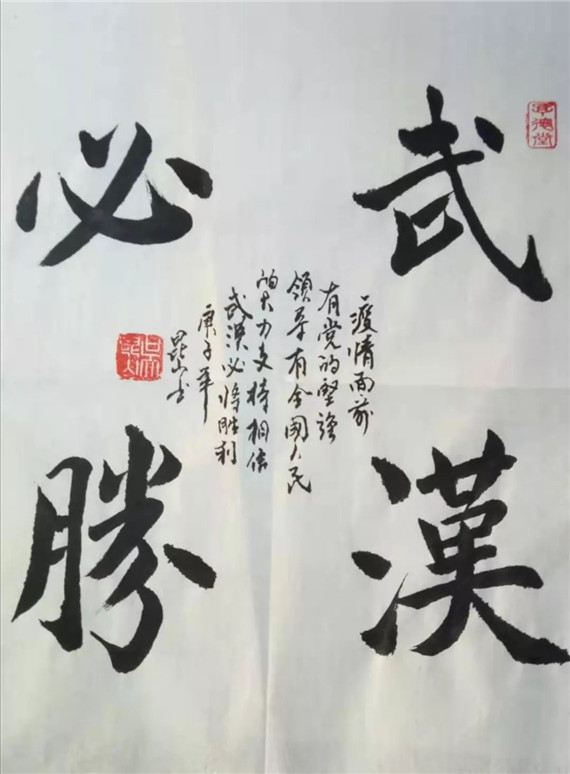 武漢
必勝
疫情面前
有党的堅強
領导有全國人民
的大力支持相信
武漢必将胜利
庚子年